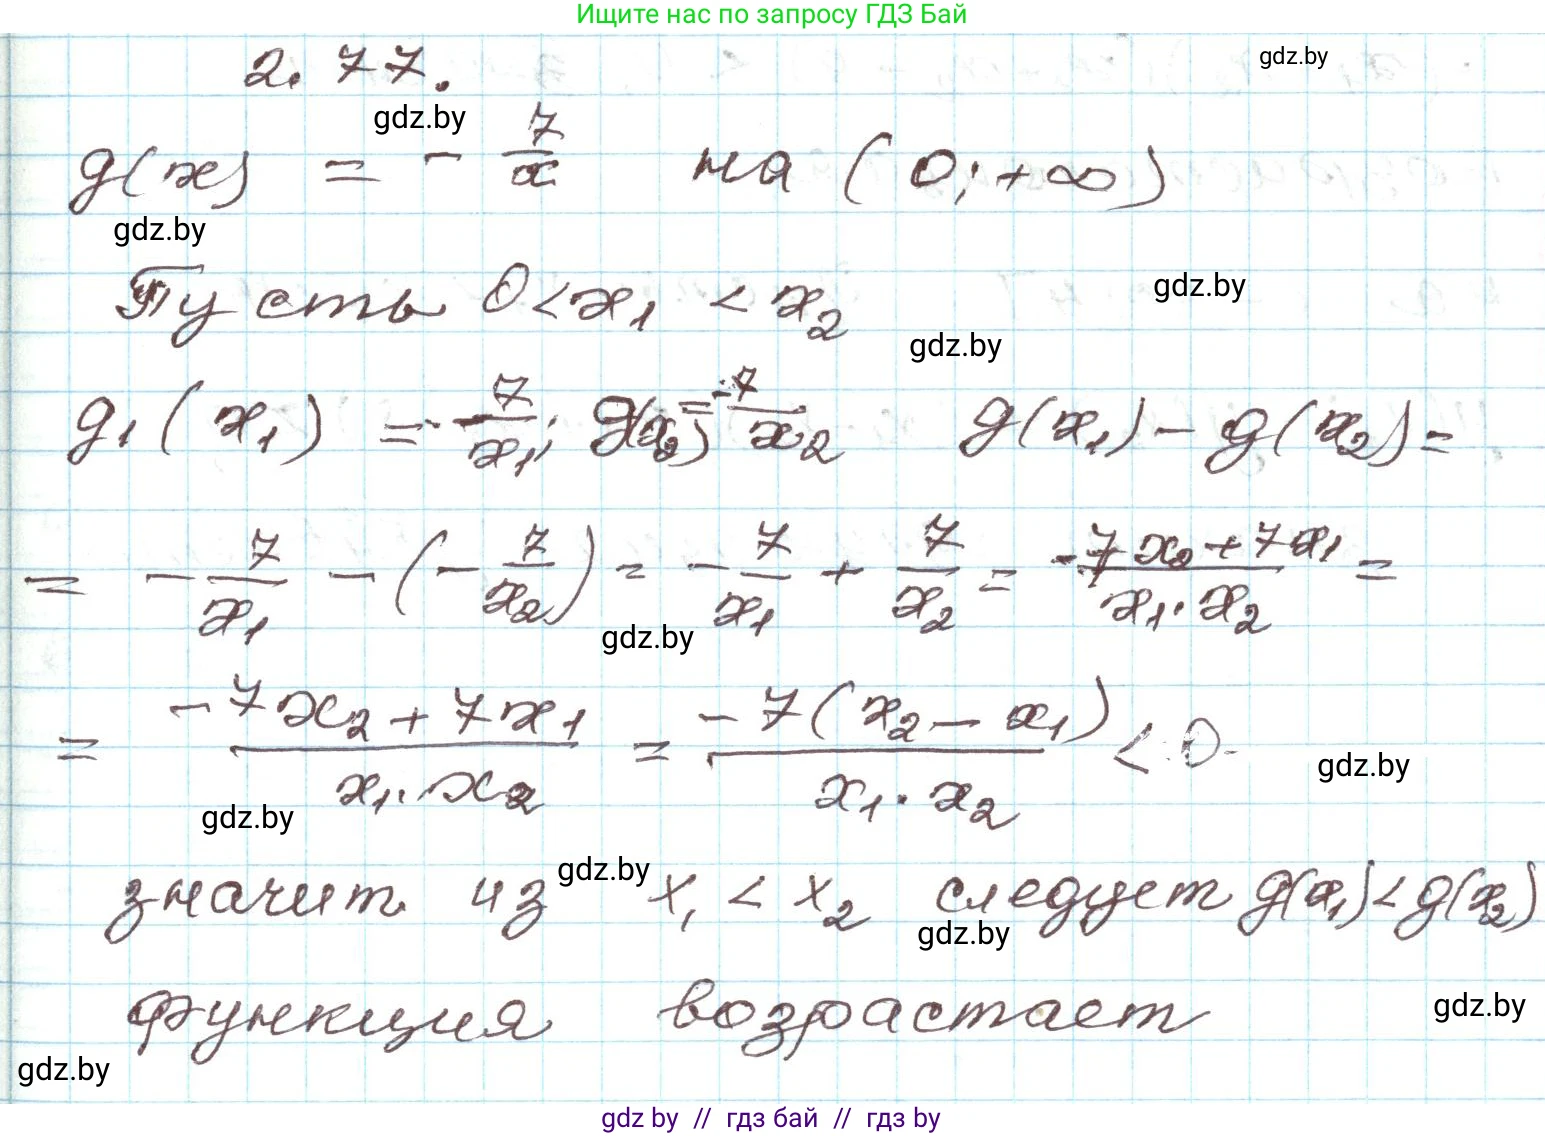 Ищите нас по запросу ГДЗ Бай
gdz.by
2.77.
gdz.by
g(x) = - 7/x на (0; +∞)
gdz.by
Пусть 0 < x₁ < x₂
gdz.by
gdz.by
g₁(x₁) = - 7/x₁; g(x₂) = -7/x₂ g(x₁) - g(x₂) =
= - 7/x₁ - (- 7/x₂) = - 7/x₁ + 7/x₂ = (-7x₂ + 7x₁)/(x₁ · x₂) =
gdz.by
= (-7x₂ + 7x₁)/(x₁ · x₂) = (-7(x₂ - x₁))/(x₁ · x₂) < 0
gdz.by
gdz.by
gdz.by
значит из x₁ < x₂ следует g(x₁) < g(x₂)
gdz.by
функция возрастает
gdz.by
gdz.by
gdz by // гдз бай // гдз by